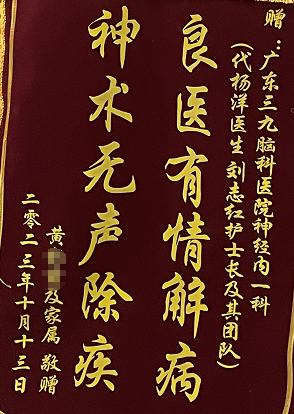 赠：广东三九脑科医院神经内一科
（代杨洋医生刘志红护士长及其团队）
良医有情解病
神术无声除疾
黄及家属 敬赠
二零二三年十月十三日